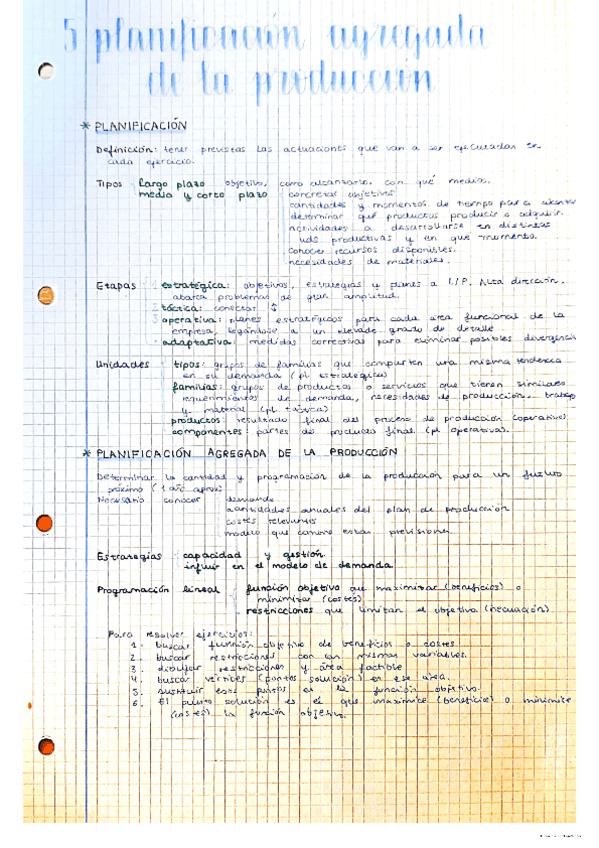 5 planificación agregada
de la producción
* PLANIFICACIÓN
Definición: tener previstas las actuaciones que van a ser ejecutadas en
cada ejercicio.
Tipos largo plazo objetivo, como alcanzarlo, con qué medios.
medio y corto plazo concretar objetivos
cantidades y momentos de tiempo para
determinar qué productos producir o adquirir.
actividades a desarrollarse en distintas
uds productivas y en qué momento.
conocer recursos disponibles.
necesidades de materiales.
Etapas estratégica: objetivos, estrategias y planes a L/P. Alta dirección,
abarca problemas de gran amplitud.
táctica: conectar ↕
operativa: planes estratégicos para cada área funcional de la
empresa, llegándose a un elevado grado de detalle
adaptativa: medidas correctivas para eliminar posibles divergencia
Unidades tipos: grupos de familias que comparten una misma tendencia
en su demanda (pl. estratégica)
familias: grupos de productos o servicios que tienen similares
requerimientos de demanda, necesidades de producción, trabajo
y material (pl. táctica)
productos: resultado final del proceso de producción (operativa).
componentes: partes de producto final (pl. operativa).
* PLANIFICACIÓN AGREGADA DE LA PRODUCCIÓN
Determinar la cantidad y programación de la producción para un futuro
próximo (1 año aprox)
Necesario conocer demanda
cantidades anuales del plan de producción
costes relevantes
modelo que combine estas previsiones
Estrategias capacidad y gestión.
influir en el modelo de demanda
Programación lineal función objetivo que maximizar (beneficios) o
minimizar (costes)
restricciones que limitan el objetivo (inecuación)
Para resolver ejercicios:
1. buscar función objetivo de beneficios o costes
2. buscar restricciones con las mismas variables.
3. dibujar restricciones y área factible
4. buscar vértices (puntos solución) en ese área.
5. sustituir esos puntos en la función objetivo.
6. El punto solución es el que maximice (beneficio) o minimice
(costes) la función objetivo.